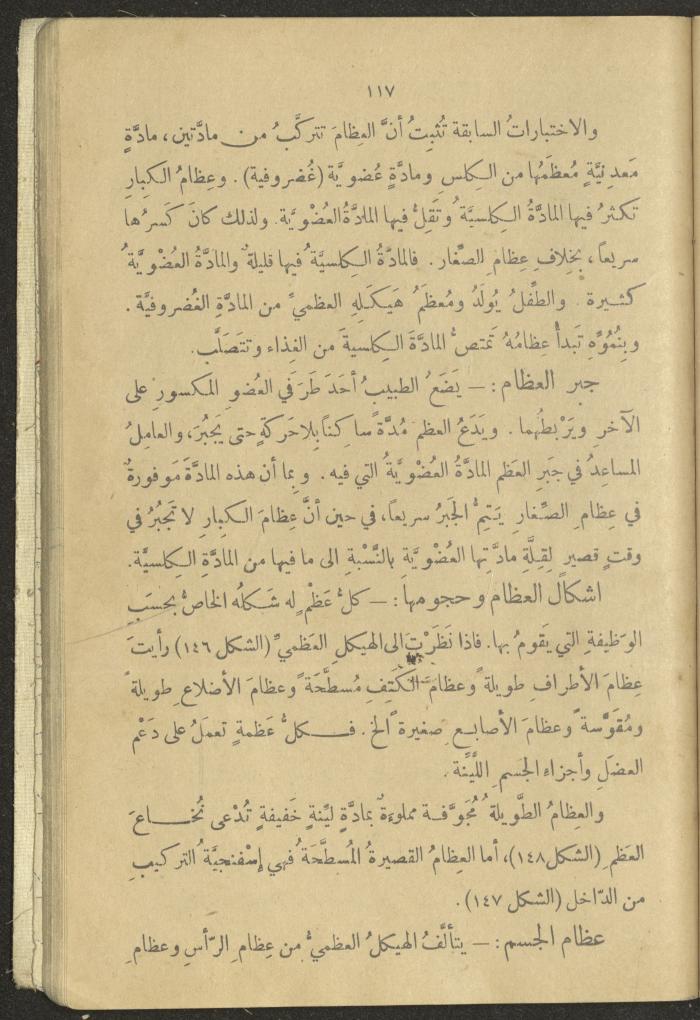 ١١٧
والاختباراتُ السابقة تُثبِتُ أنَّ العِظامَ تتركَّبُ من مادَّتين، مادَّةٍ
مَعدِنيَّةٍ مُعظَمُها من الكِلس ومادَّةٍ عُضويَّة (غُضروفية). وعِظامُ الكِبارِ
تكثرُ فيها المادَّةُ الكِلسيَّةُ وتَقِلُّ فيها المادَّةُ العُضْويَّة. ولذلك كانَ كَسرُها
سريعاً، بخِلافِ عِظامِ الصِّغار. فالمادَّةُ الكِلسيَّةُ فيها قليلةٌ والمادَّةُ العُضْويَّةُ
كثيرة. والطِّفلُ يُولَدُ ومُعظَمُ هَيكَلِهِ العظميِّ من المادَّةِ الغُضروفيَّة.
وبِنُمُوِّهِ تَبدأُ عظامُهُ تَمتصُّ المادَّةَ الكِلسيةَ من الغِذاء وتتَصَلَّب.
جبر العظام: — يَضَعُ الطبيبُ أحَدَ طَرَفَي العُضوِ المكسورِ على
الآخرِ ويَرْبطُهما. ويَدَعُ العظمَ مُدَّةً ساكناً بِلاحَركةٍ حتى يَجبُرَ، والعامِلُ
المساعِدُ في جَبرِ العَظم المادَّةُ العُضْويَّةُ التي فيه. وبما أن هذه المادَّةَ مَوفورةٌ
في عِظامِ الصِّغارِ يَتِمُّ الجَبرُ سريعاً، في حين أنَّ عِظامَ الكِبارِ لا تَجبُرُ في
وقتٍ قصيرٍ لِقِلَّةِ مادَّتِها العُضْويَّة بالنِّسْبةِ الى ما فيها من المادَّةِ الكِلسيَّة.
اشكال العظام وحجومها: — كلُّ عَظْمٍ له شَكلُه الخاصُّ بحسَبِ
الوَظيفةِ التي يَقومُ بها. فاذا نَظَرْتَ الى الهيكلِ العَظميِّ (الشكل ١٤٦) رأيتَ
عِظامَ الأطرافِ طويلةً وعظامَ الكَتِفِ مُسطَّحَةً وعظامَ الأضلاعِ طويلةً
ومُقَوَّسةً وعظامَ الأصابعِ صغيرةً الخ. فكلُّ عَظمةٍ تعمَلُ على دَعْم
العضَلِ وأجزاءِ الجسمِ الليِّنة.
والعِظامُ الطَّويلةُ مُجَوَّفة مملوءةٌ بمادَّةٍ ليِّنةٍ خَفيفةٍ تُدْعى نُخاعَ
العَظمِ (الشكل ١٤٨)، أما العِظامُ القصيرةُ المُسطَّحَةُ فهي إسْفنجيَّةُ التركيبِ
من الدّاخل (الشكل ١٤٧).
عظام الجسم: — يتألَّفُ الهيكلُ العظميُّ من عِظامِ الرّأسِ وعظامِ